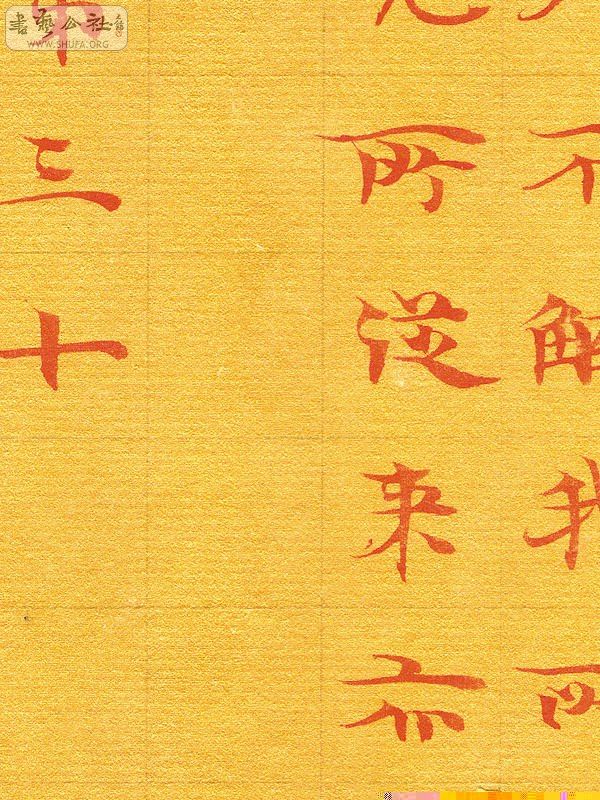 不解我所
所從来亦
三十
書藝公社
WWW.SHUFA.ORG